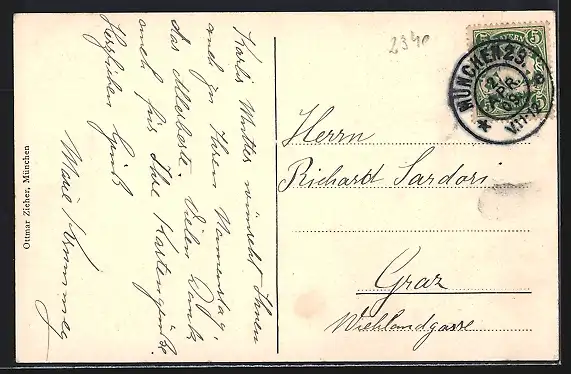 Karlis Mutter wünscht Ihnen
auch zu Ihrem Namenstag,
das Allerbeste. Vielen Dank
auch für Ihre Kartengrüße.
Herzlichen Gruß
Marie
Ottmar Zieher, München
2340
5 BAYERN 5
MÜNCHEN 29.
21
APR.
09
VII-8
Herrn
Richard Sardori
Graz
Wielandgasse